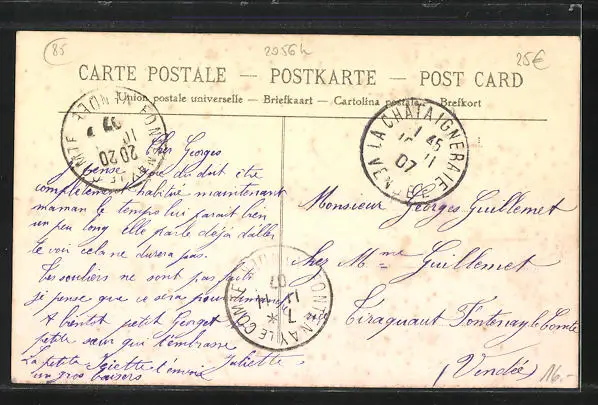 85
2056h
25€
CARTE POSTALE — POSTKARTE — POST CARD
Union postale universelle — Briefkaart — Cartolina postale — Brefkort
FONTENAY-LE-COMTE VENDÉE
20 20
10
07
LA CHATAIGNERAIE VENDÉE
1 45
10 11
07
Cher Georges
Je pense que tu doit être
complètement habitué maintenant
maman le temps lui parait bien
un peu long elle parle déjà d'aller
te voir cela ne durera pas.
Tes souliers ne sont pas faits
je pense que ce sera pour
A bientôt petit Georget
petite sœur qui t'embrasse
Juliette
La petite t'envoie
un gros baisers
Monsieur Georges Guillemet
chez Mme Guillemet
Tiraquaut Fontenay le Comte
(Vendée)
FONTENAY-LE-COMTE
7
11 11
07
16.-